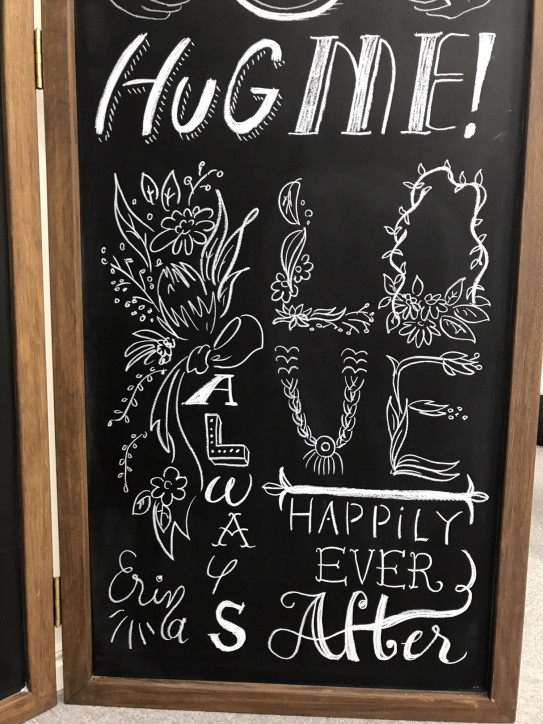 HuG ME!
LO
VE
A
L
W
A
Y
S
HAPPiLY
EVER
After
Erina